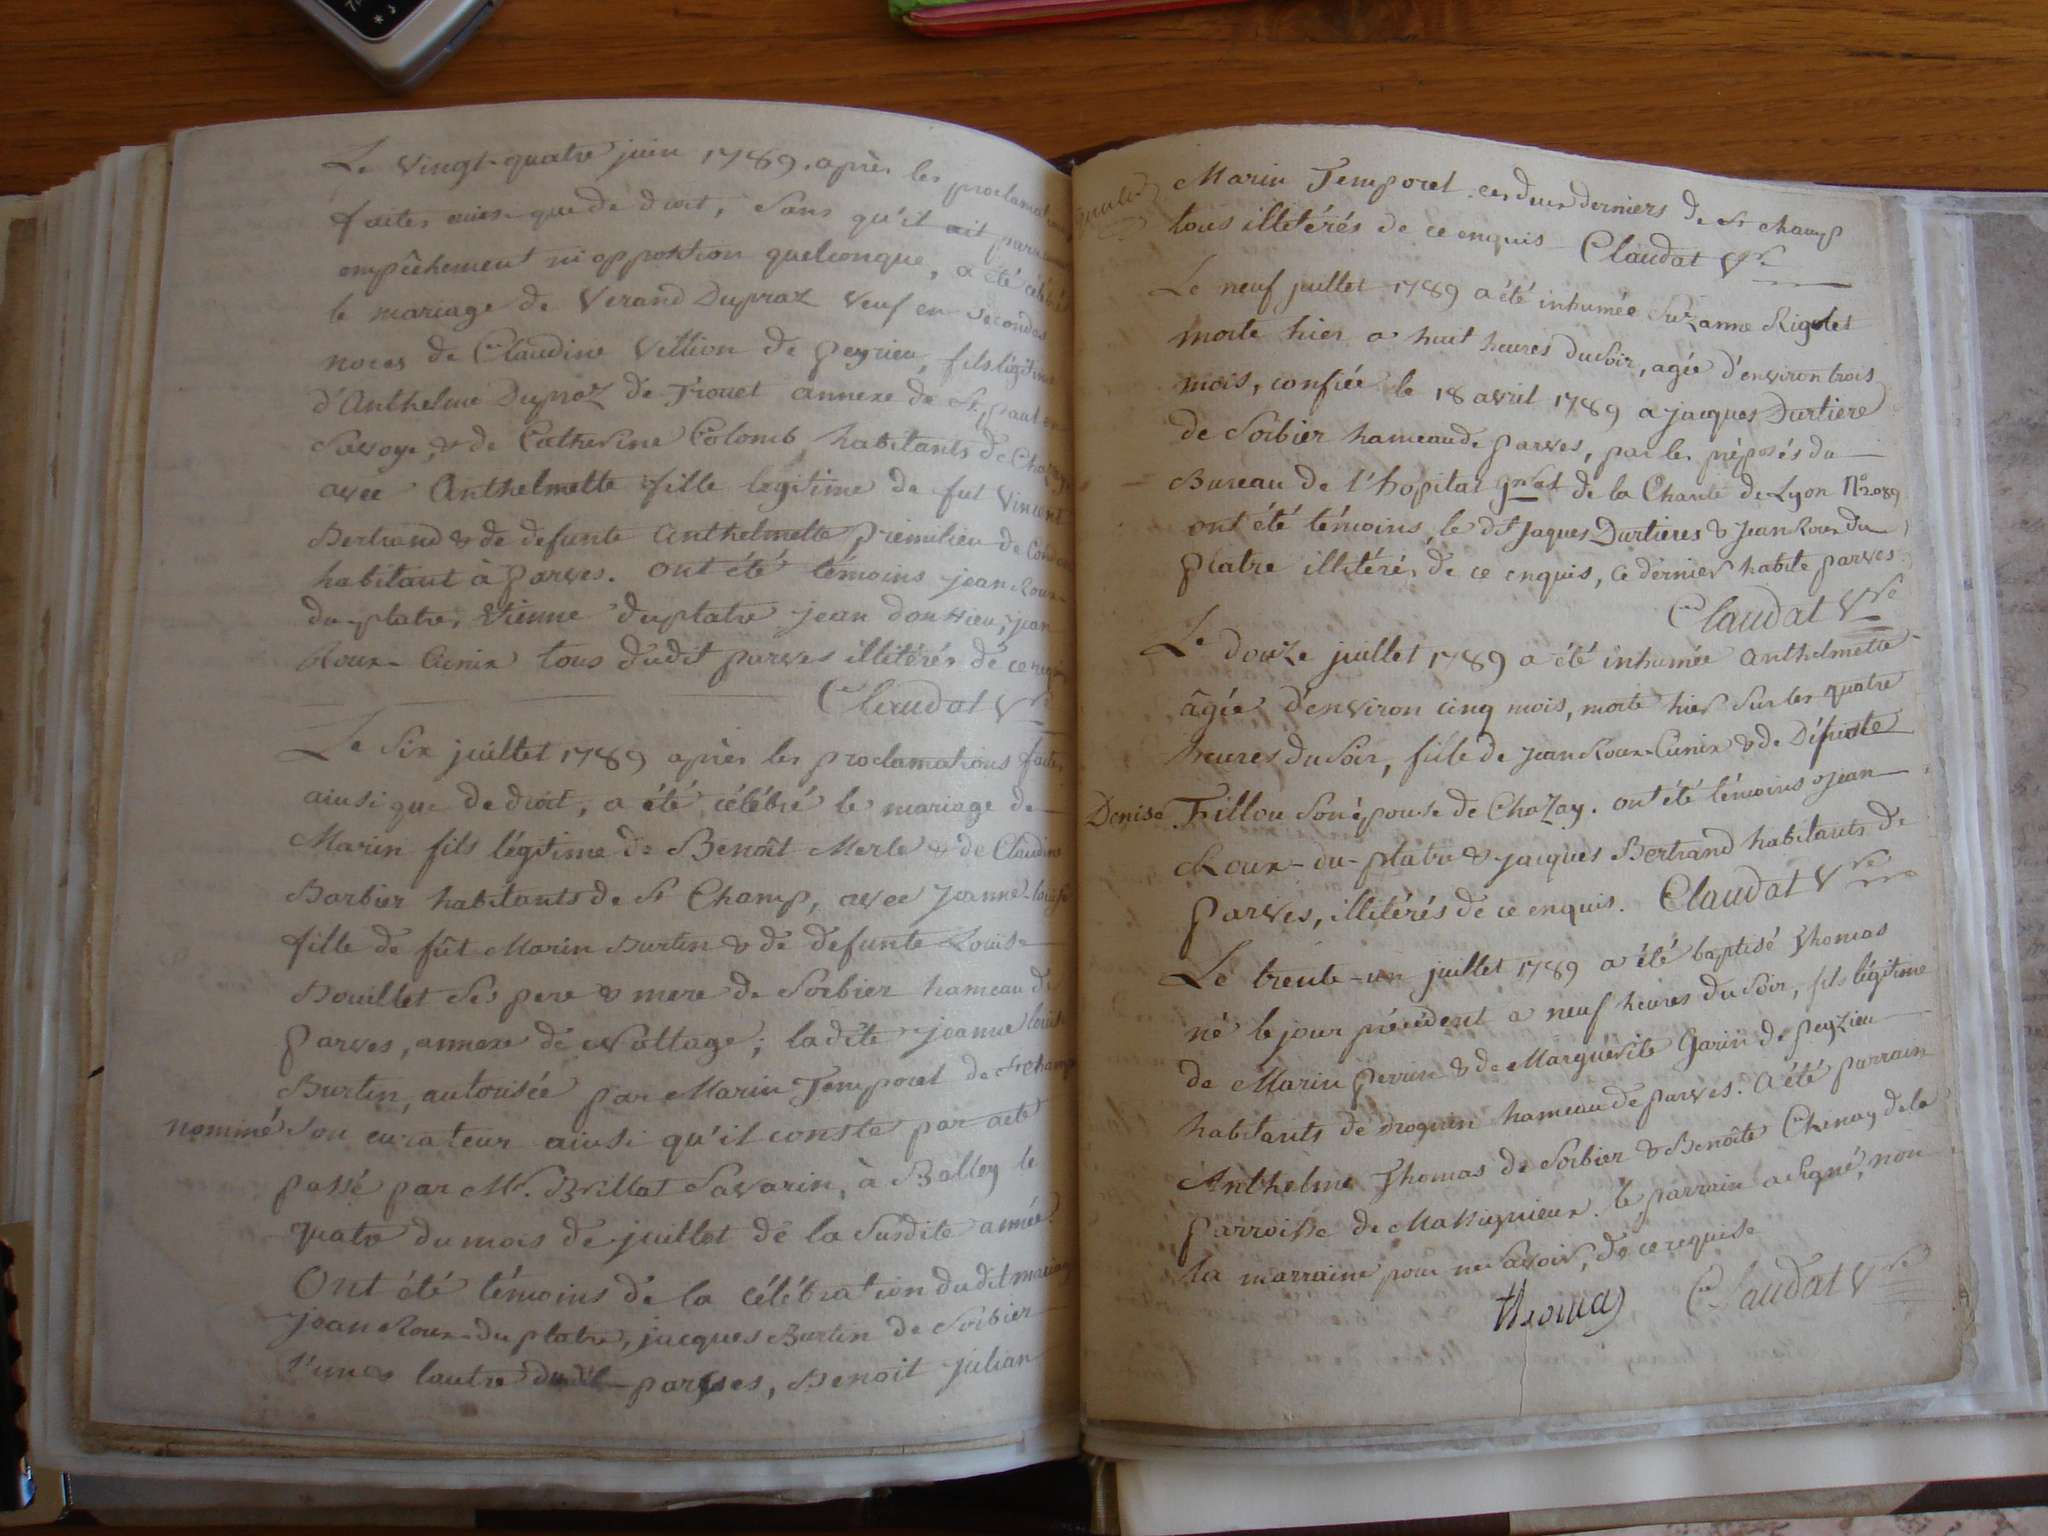 Le vingt-quatre juin 1789. après les proclamations
faites ainsi que de droit, sans qu'il ait parru
empêchement ni opposition quelconque, a été célébré
le mariage de Verand Dupraz veuf en secondes
noces de Claudine Vettion de peyrieu, fils légitime
d'Anthelme Dupraz de Trouet annexe de St. paul en
Savoye, & de Catherine Colomb, habitants de Chazay
avec Anthelmette fille legitime de fut Vincent
Bertrand & de defunte Anthelmette premilieu de
habitant à parves. ont été témoins jean Roux-
du-platre, Etienne duplatre jean doussieu, jean
Roux-Cunin tous dudit parves illitérés de ce
Claudat Vre
Le Six juillet 1789 après les proclamations faites
ainsi que de droit, a été célébré le mariage de
Marin fils légitime de Benoît Merle & de Claudine
Barbier habitants de St Champ, avec Jeanne-louise
fille de fût Marin Burtin & de defunte Louise
Douillet ses pere & mere de Sorbier hameau de
parves, annexe de Nattage; ladite jeanne louise
Burtin, autorisée par Marin Temporel de St champ
nommé Son curateur ainsi qu'il conste par acte
passé par Mr. Brillat Savarin, à Belley le
quatre du mois de juillet de la Susdite année.
Ont été témoins de la célébration dudit mariage
jean Roux-du platre, jacques Burtin de Sorbier
l'un & lautre dudit parves, Benoit julian
Marin Temporel ces deux derniers de St champ
tous illitérés de ce enquis Claudat Vre
Le neuf juillet 1789 a été inhumée Suzanne Rigolet
morte hier a huit heures du soir, agée d'environ trois
mois, confiée le 18 avril 1789 a jacques Durtiere
de Sorbier hameau de parves, par les préposés du
Bureau de l'hopital gnral de la Charité de Lyon No 2089
ont été témoins, le dt Jaques Durtieres & jean Roux du
platre illitérés de ce enquis, ce dernier habite parves.
Claudat Vre
Le douze juillet 1789 a été inhumée Anthelmette
âgée d'environ cinq mois, morte hier sur les quatre
heures du soir, fille de jean Roux-Cunin & de Défunte
Denise Fillou son épouse de Chazay. ont été témoins jean
Roux-du-platre & jacques Bertrand habitants de
parves, illitérés de ce enquis. Claudat Vre
Le trente-un juillet 1789 a été baptisé Thomas
né le jour précédent a neuf heures du soir, fils légitime
de Marin perrin & de Marguerite Garin de peyzieu
habitants de hameau de parves. a été parrain
Anthelme Thomas de Sorbier & Benoîte Chenay de la
parroisse de Massignieux. le parrain a signé, non
la marraine pour ne savoir, de ce requise
thomas Claudat Vre